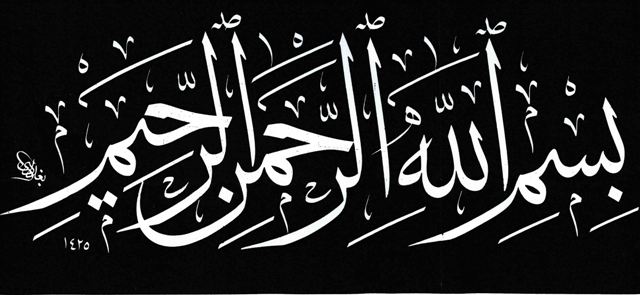 بِسْمِ اللَّهِ الرَّحْمَٰنِ الرَّحِيمِ
١٤٢٥